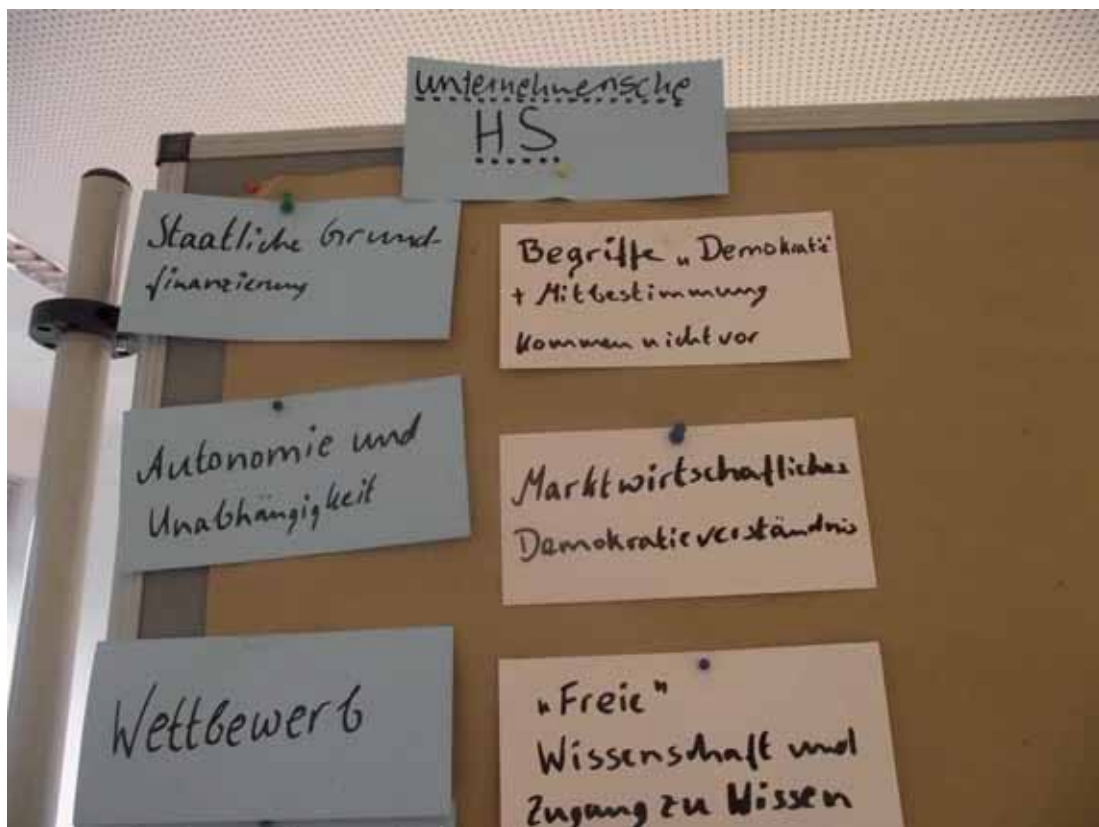 unternehmerische
HS
Staatliche Grund-
finanzierung
Autonomie und
Unabhängigkeit
Wettbewerb
Begriffe „Demokratie
+ Mitbestimmung
kommen nicht vor
Marktwirtschaftliches
Demokratieverständnis
„Freie"
Wissenschaft und
Zugang zu Wissen